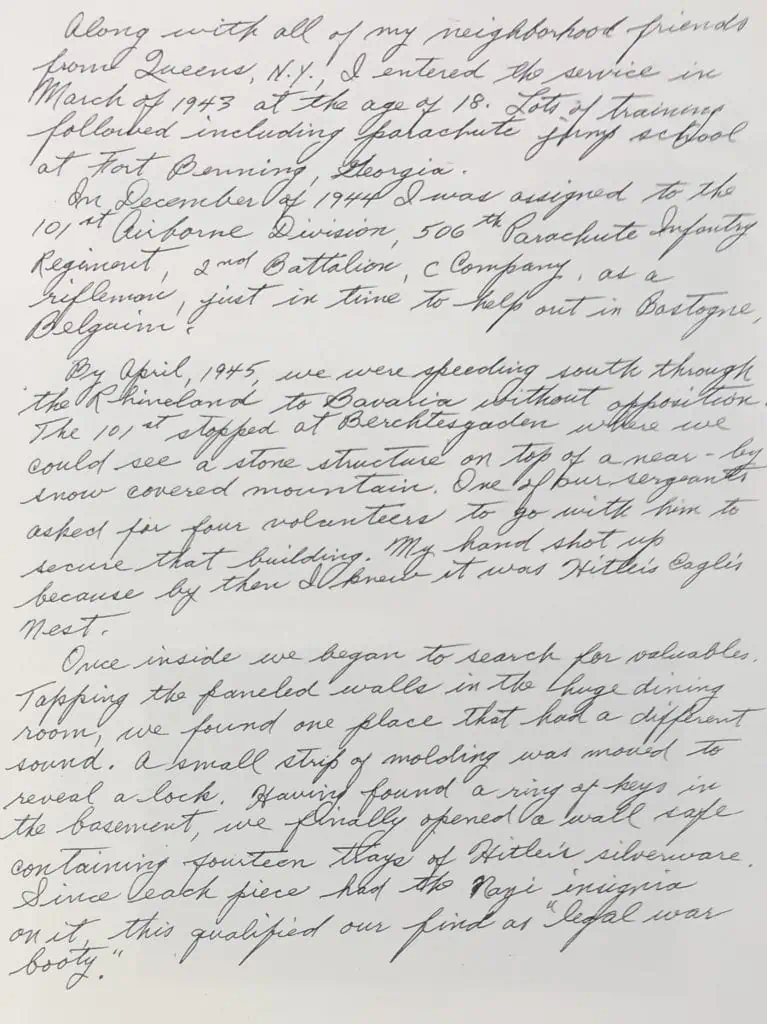 Along with all of my neighborhood friends
from Queens, N.Y., I entered the service in
March of 1943 at the age of 18. Lots of training
followed including parachute jump school
at Fort Benning, Georgia.
In December of 1944 I was assigned to the
101st Airborne Division, 506th Parachute Infantry
Regiment, 2nd Battalion, C Company, as a
rifleman, just in time to help out in Bastogne,
Belguim.
By April, 1945, we were speeding south through
the Rhineland to Bavaria without opposition.
The 101st stopped at Berchtesgaden where we
could see a stone structure on top of a near-by
snow covered mountain. One of our sergeants
asked for four volunteers to go with him to
secure that building. My hand shot up
because by then I knew it was Hitler's Eagle's
Nest.
Once inside we began to search for valuables.
Tapping the paneled walls in the huge dining
room, we found one place that had a different
sound. A small strip of molding was moved to
reveal a lock. Having found a ring of keys in
the basement, we finally opened a wall safe
containing fourteen trays of Hitler's silverware.
Since each piece had the Nazi insignia
on it, this qualified our find as "legal war
booty."